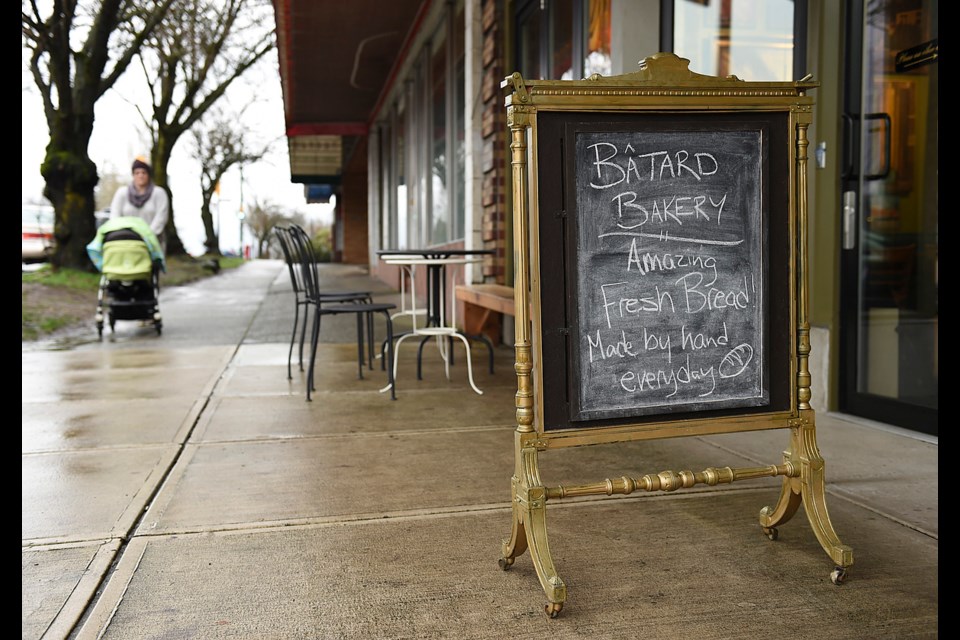 BÂTARD
BAKERY
Amazing
Fresh Bread!
Made by hand
everyday